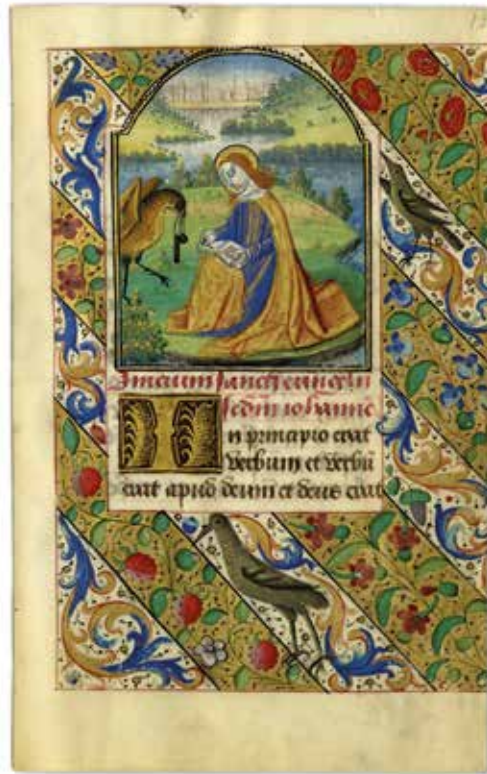 Inicium sancti euangelii
secdm iohanne
In principio erat
verbum et verbu
erat apud deum et deus erat